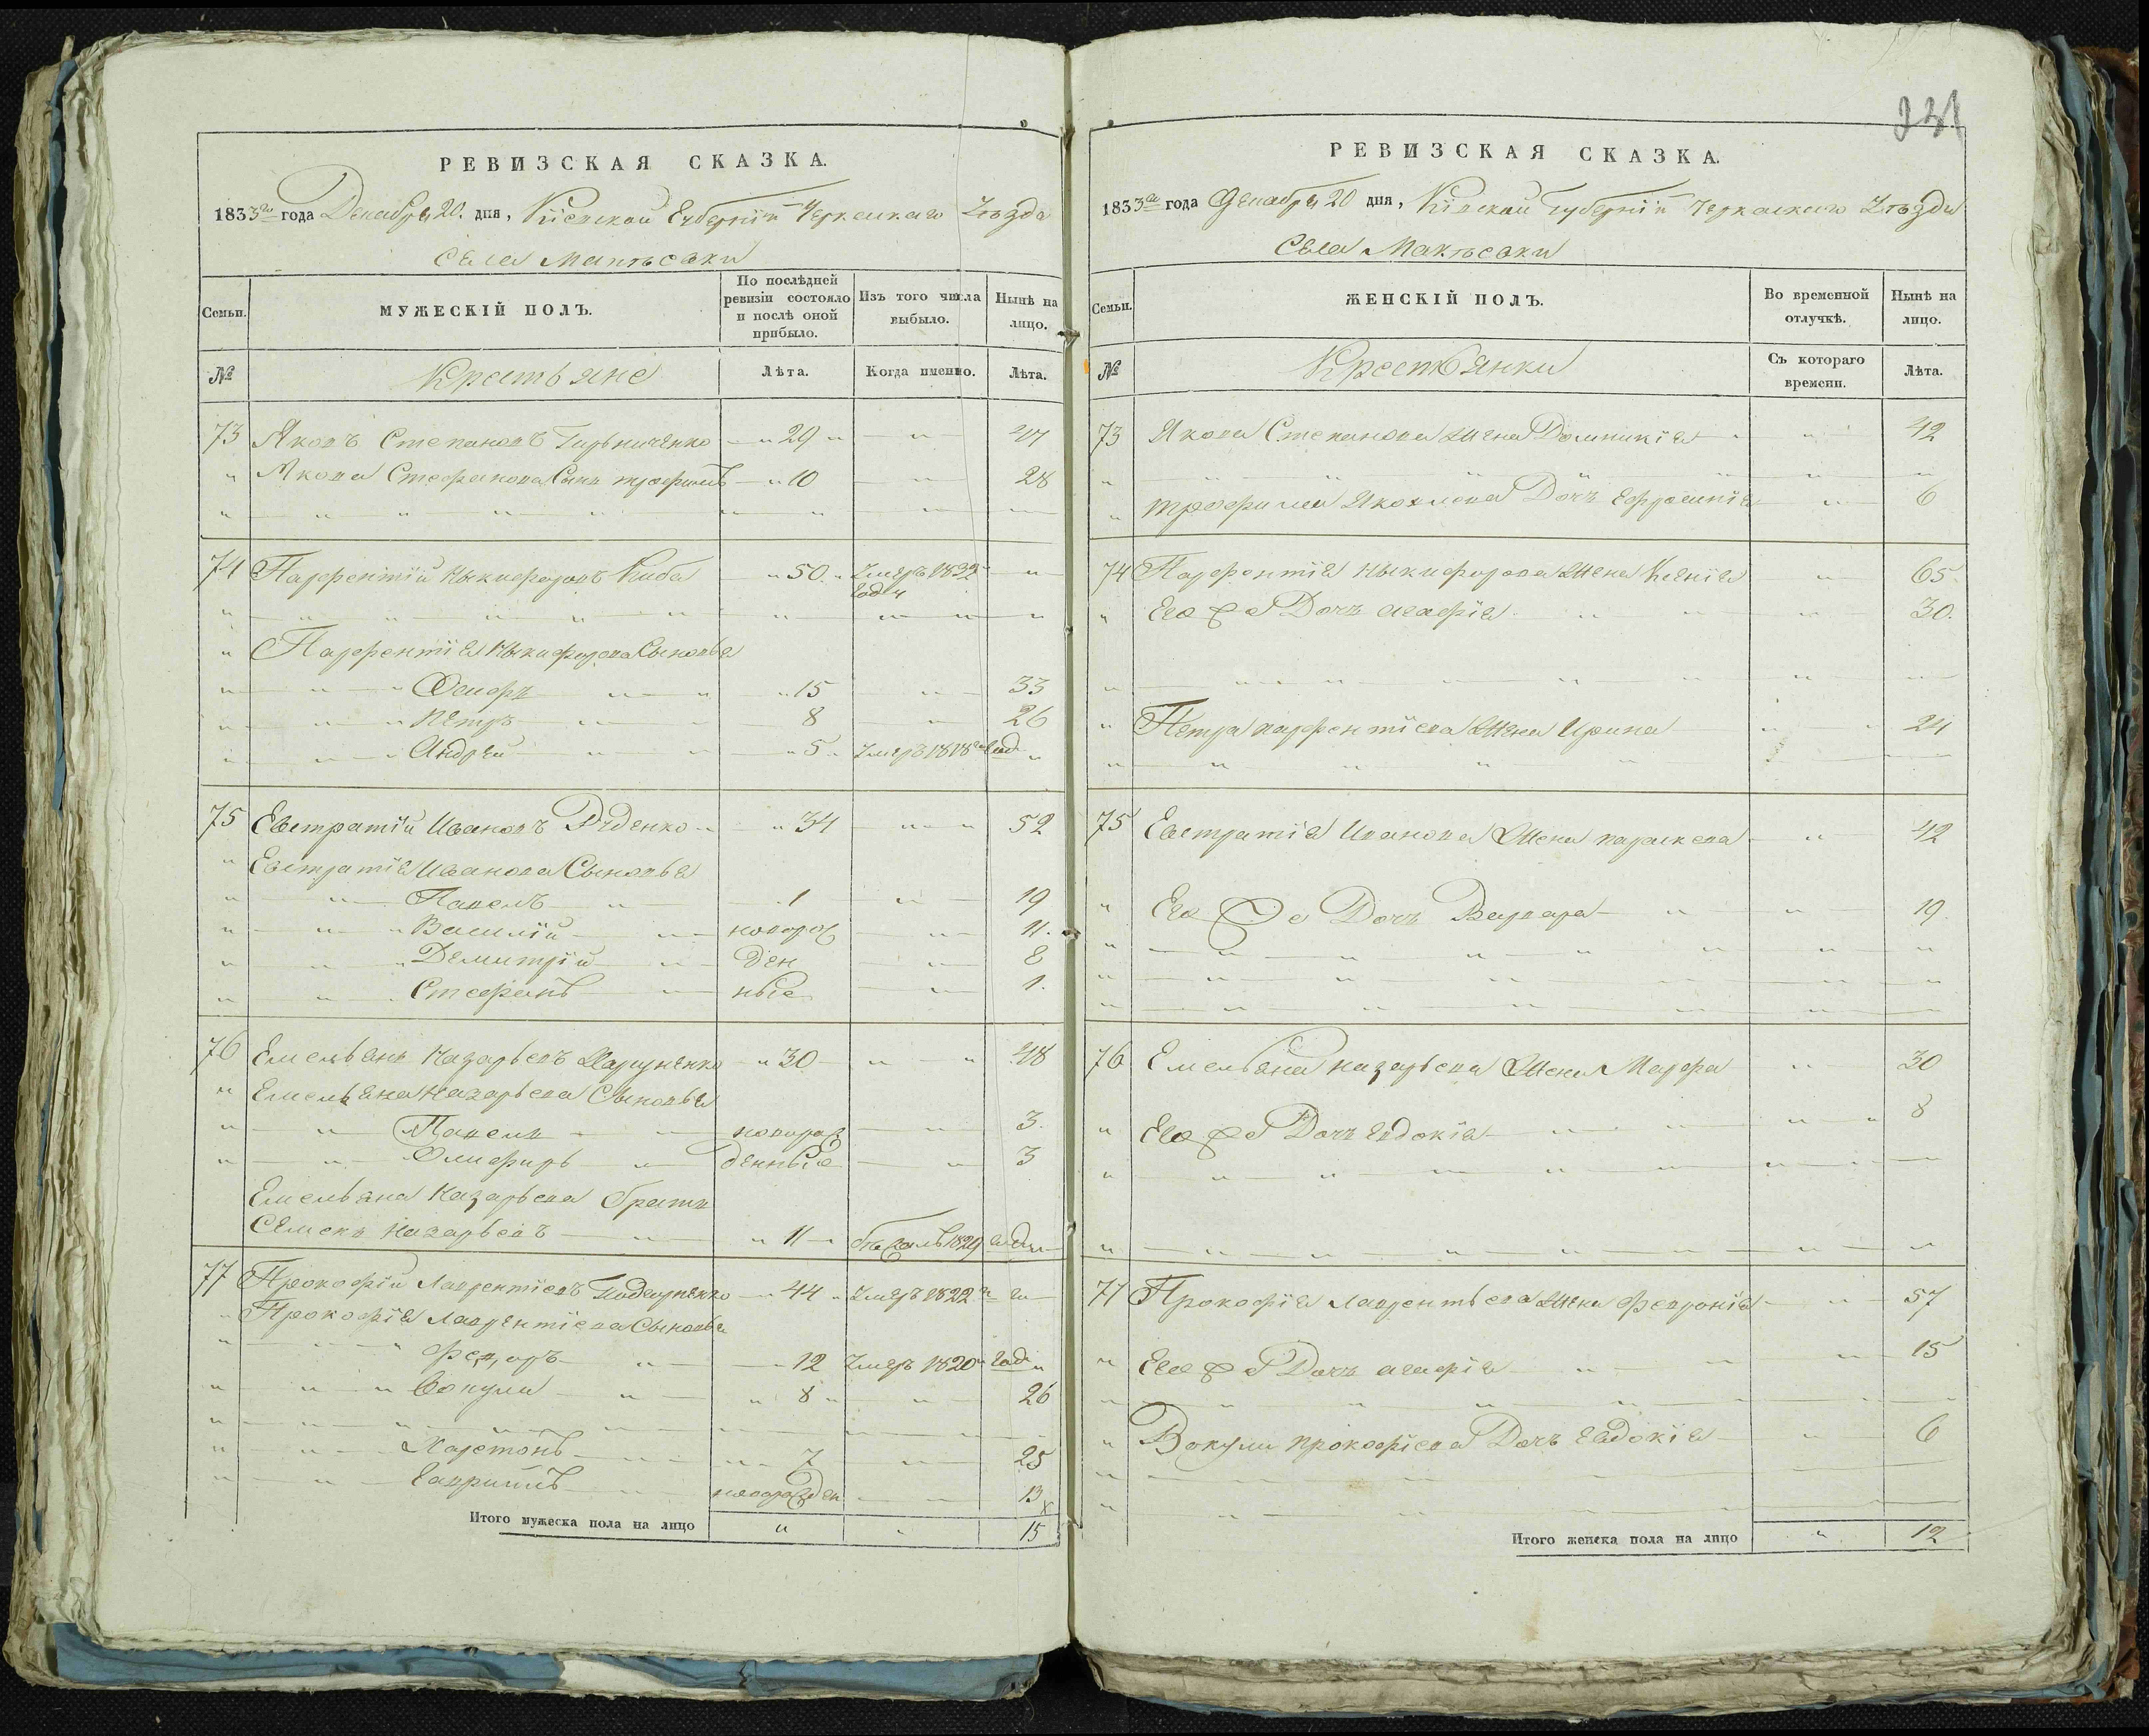 РЕВИЗСКАЯ СКАЗКА.
1833го года Декабря 20. дня, Кіевской Губерніи Черкаскаго Уѣзда
Села Макѣевки
Семьи. МУЖЕСКІЙ ПОЛЪ. По послѣдней ревизіи состояло и послѣ оной прибыло. Изъ того числа выбыло. Нынѣ на лицо.
№ Крестьяне Лѣта. Когда именно. Лѣта.
73 Яковъ Степановъ 29 47
Якова Стефанова Сынъ трофимъ 10 28
74 Парфентій Никифоровъ Киба 50. Умеръ 1832 года
Парфентія Никифорова Сыновья
Осифъ 15 33
Петръ 8 26
Андрей 5 Умеръ 1818го год
75 Евстратій Ивановъ Руденко 34 52
Евстратія Иванова Сыновья
Павелъ 1 19
Василій новорож 11.
Демитрій ден 8
Стефанъ ные 1.
76 Емельянъ Назарьевъ 30 48
Емельяна Назарьева Сыновья
Павелъ новорож 3.
Олиферъ денные 3
Емельяна Назарьева братъ
Семенъ Назарьевъ 11 бѣжалъ 1829 году
77 Прокофій Лаврентіевъ 44 Умеръ 1822 го
Прокофія Лаврентіева Сыновья
Федоръ 12 Умеръ 1820 год
Вокула 8 26
Харетонъ 7 25
Гавриилъ новорожден 13
Итого мужеска пола на лицо 15
231
РЕВИЗСКАЯ СКАЗКА.
1833го года Декабря 20 дня, Кіевской Губерніи Черкаскаго Уѣзда
Села Макѣевки
Семьи. ЖЕНСКІЙ ПОЛЪ. Во временной отлучкѣ. Нынѣ на лицо.
№ Крестьянки Съ котораго времени. Лѣта.
73 Якова Степанова Жена Домникія 42
трофима Яковлева Дочь Ефросинія 6
74 Парфентія Никифорова Жена Ксенія 65.
Его же Дочь агафія 30.
Петра парфентіева Жена Ирина 24
75 Евстратія Иванова Жена параскева 42
Его же Дочь Варвара 19.
76 Емельяна назарьева Жена Марфа 30
Его же Дочь Евдокія 8
77 Прокофія лаврентьева Жена февронія 57
Его же Дочь агафія 15
Вокулы прокофіева Дочь Евдокія 6
Итого женска пола на лицо 12